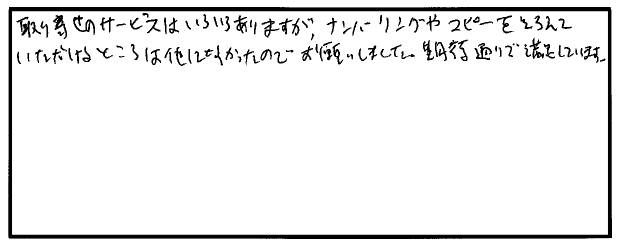 取り寄せのサービスはいろいろありますが、ナンバーリングやコピーをそろえて
いただけるところは他になかったのでお願いしました。期待通りで満足しています。